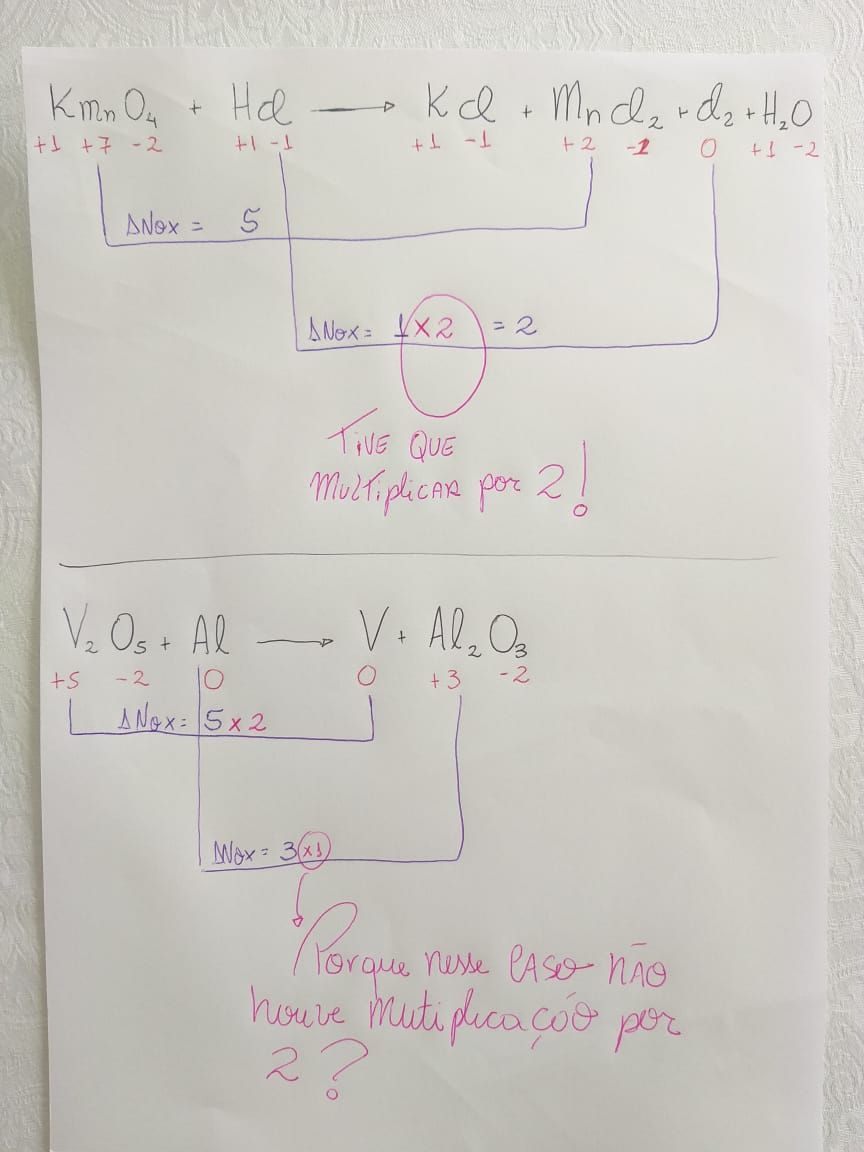 KmnO₄ + Hcl ⟶ Kcl + Mncl₂ + cl₂ + H₂O
+1 +7 -2 +1 -1 +1 -1 +2 -1 0 +1 -2
ΔNox = 5
ΔNox = 1 x 2 = 2
TIVE QUE
MulTiplicAR por 2!
V₂O₅ + Al ⟶ V + Al₂O₃
+5 -2 0 0 +3 -2
ΔNox = 5 x 2
ΔNox = 3 x1
Porque nesse CASO NÃO
houve mutiplicação por
2?